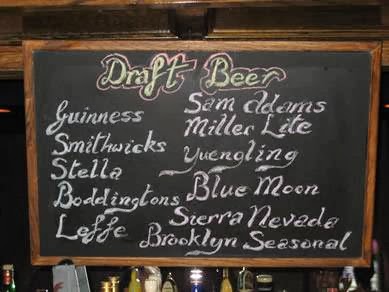 Draft Beer
Guinness
Smithwicks
Stella
Boddingtons
Leffe
Sam Adams
Miller Lite
Yuengling
Blue Moon
Sierra Nevada
Brooklyn Seasonal